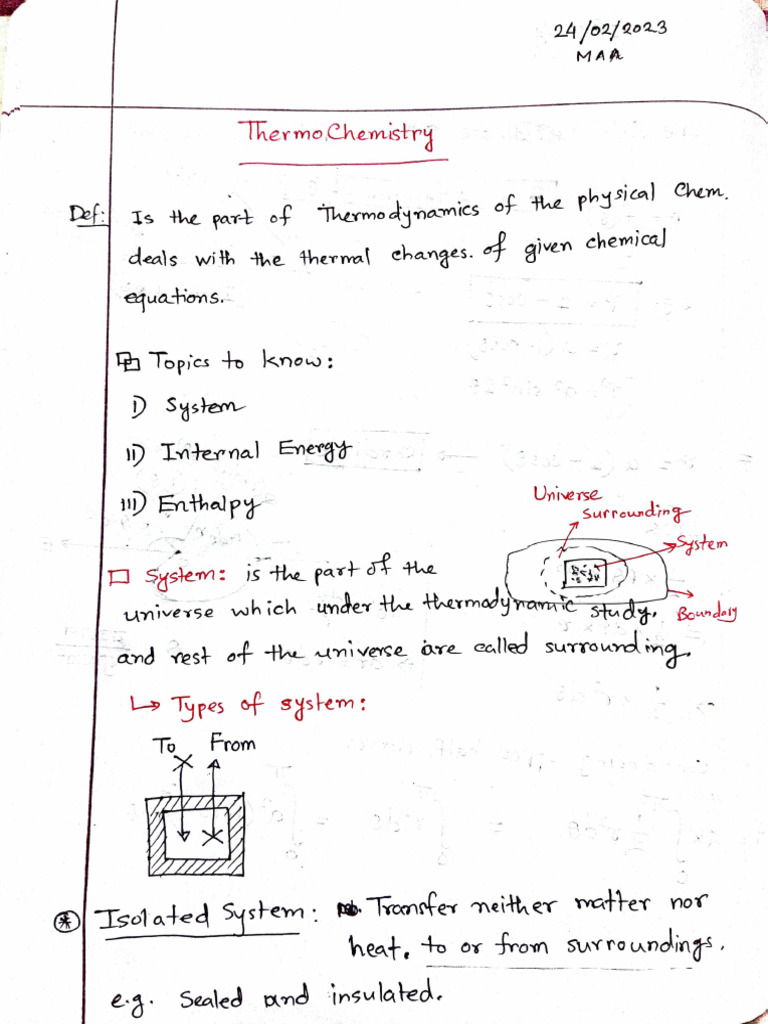 24/02/2023
MAA
ThermoChemistry
Def: Is the part of Thermodynamics of the physical Chem.
deals with the thermal changes. of given chemical
equations.
Topics to know:
I) System
II) Internal Energy
III) Enthalpy
Universe
Surrounding
System
Boundary
System: is the part of the
universe which under the thermodynamic study.
and rest of the universe are called surrounding.
↳ Types of system:
To From
Isolated System: Transfer neither matter nor
heat. to or from surroundings.
e.g. Sealed and insulated.